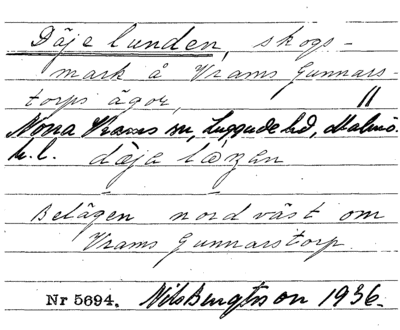 Däjelunden, skogs-
mark å Vrams Gunnars-
torps ägor, "
Norra Vrams sn, Luggude hd, Malmö.
h. l. däja læzan
Belägen nordväst om
Vrams Gunnarstorp.
Nr 5694. Nils Bengtsson 1936.